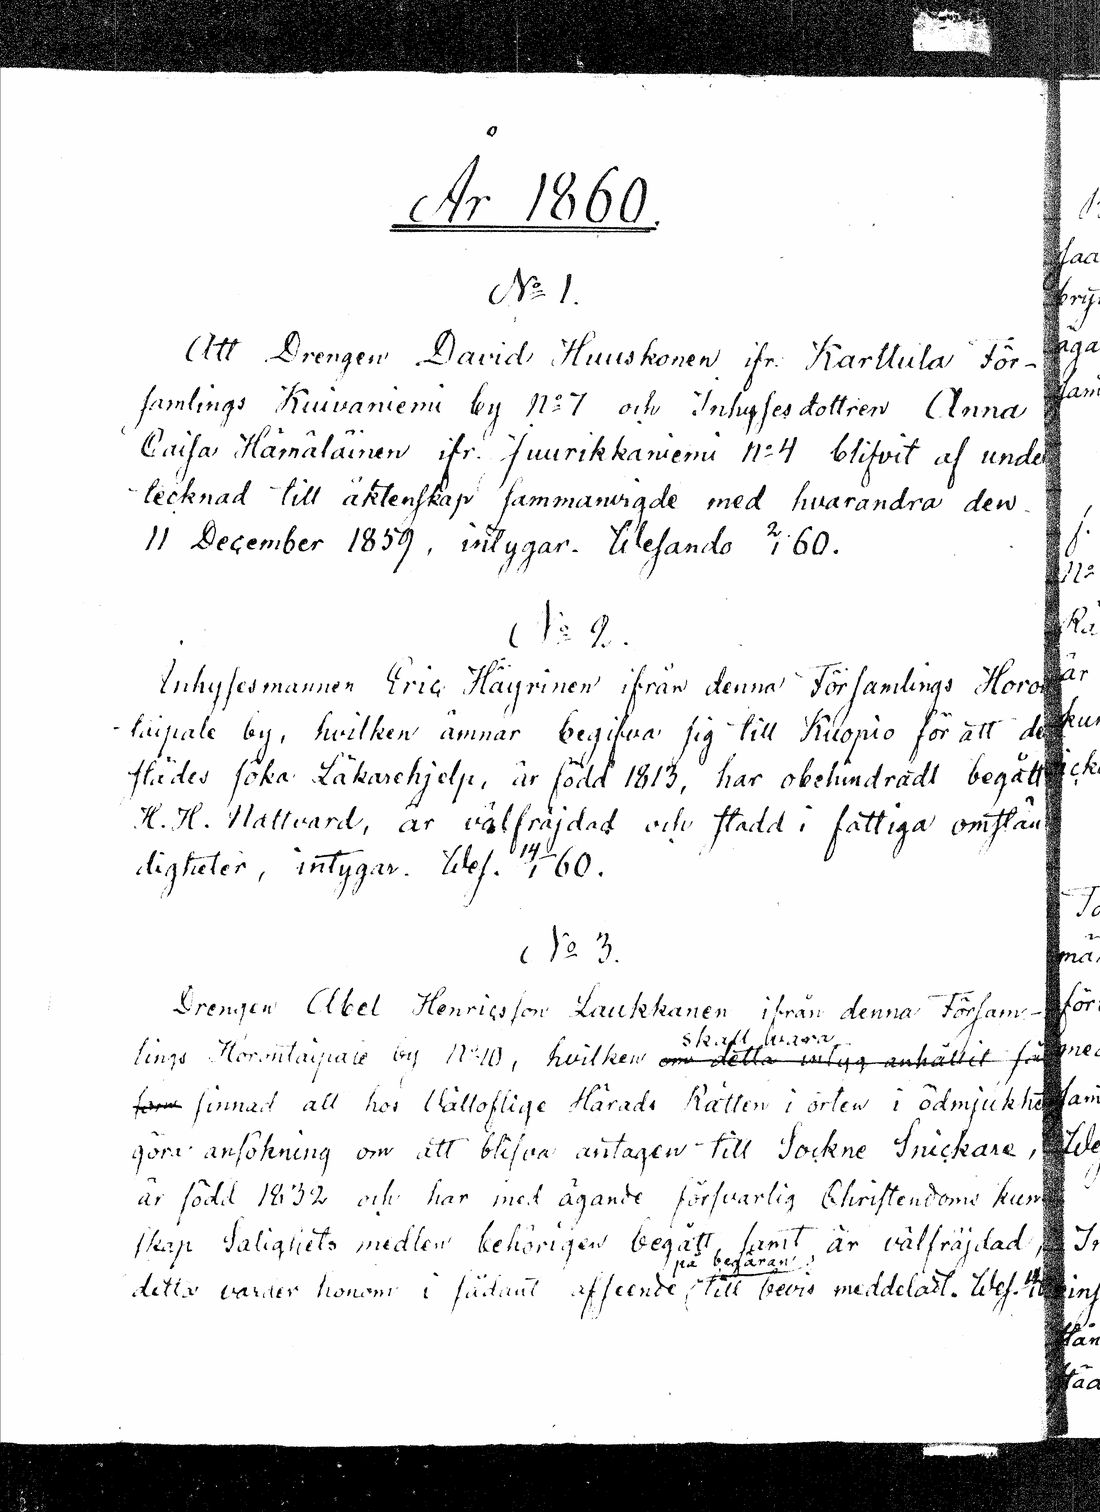 År 1860.
No 1.
Att Drengen David Huuskonen ifr. Karttula För-
samlings Kuivaniemi by No 7 och Inhysesdottren Anna
Caisa Hämäläinen ifr. Juurikkaniemi No 4 blifvit af unde
tecknad till äktenskap sammanvigde med hvarandra den
11 December 1859, intygar. Wesando 2/1 60.
No 2.
Inhysesmannen Eric Häyrinen ifrån denna Församlings Horon
taipale by, hvilken ämnar begifva sig till Kuopio för att de
städes söka Läkarehjelp, är född 1813, har obehindradt begått
H. H. Nattvard, är välfräjdad och stadd i fattiga omstän
digheter, intygar. Wes. 14/1 60.
No 3.
Drengen Abel Henricsson Laukkanen ifrån denna Försam-
skall vara
lings Horontaipale by No 10, hvilken om detta intyg anhållit så
som sinnad att hos Välloflige Härads Rätten i orten i ödmjukhe
göra ansökning om att blifva antagen till Sockne Snickare,
är född 1832 och har med ägande försvarlig Christendoms kun
skap Salighets medlen behörigen begått, samt är välfräjdad,
på begäran
detta varder honom i sådant afseende till bevis meddeladt. Wes. 14/1